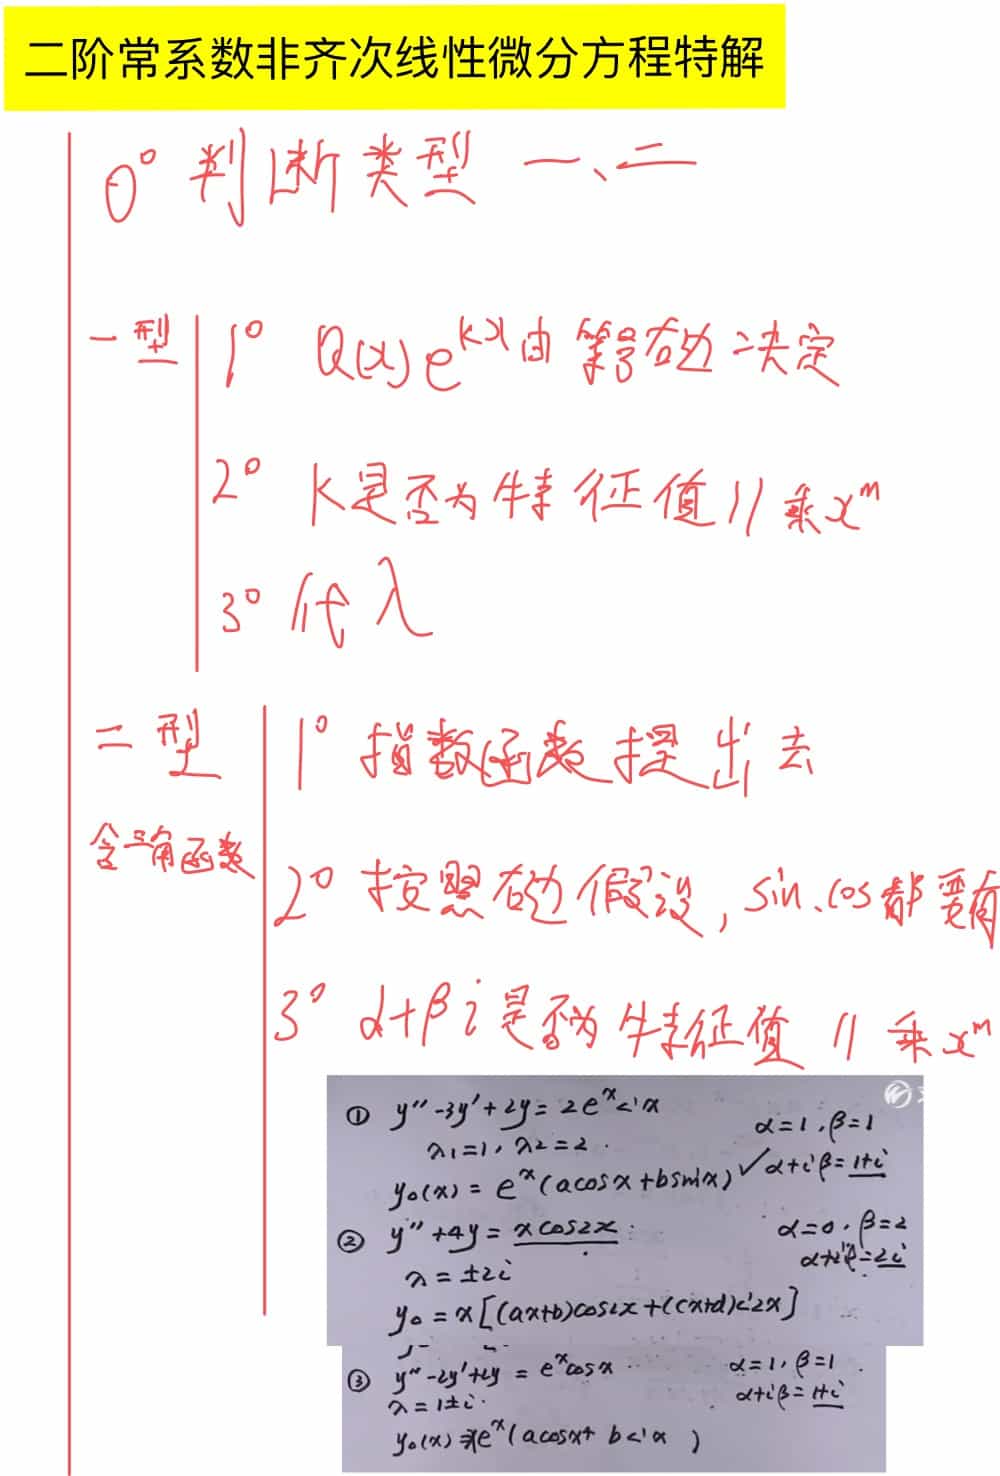 二阶常系数非齐次线性微分方程特解
0° 判断类型 一、二
一型
1° Q(x)e^{kx}由等号右边决定
2° k是否为特征值 // 乘x^m
3° 代入
二型
含三角函数
1° 指数函数提出去
2° 按照右边假设, sin、cos都要有
3° α+βi是否为特征值 // 乘x^m
① y''-3y'+2y=2e^x<'x α=1,β=1
λ1=1, λ2=2. α+iβ=1+i
y0(x)=e^x(acosx+bsinx)✓
② y''+4y=xcos2x. α=0,β=2
λ=±2i α+iβ=2i
y0=x[(ax+b)cos2x+(cx+d)<'2x]
③ y''-2y'+2y=e^xcosx α=1,β=1
λ=1±i. α+iβ=1+i
y0(x)=xe^x(acosx+b<'x)